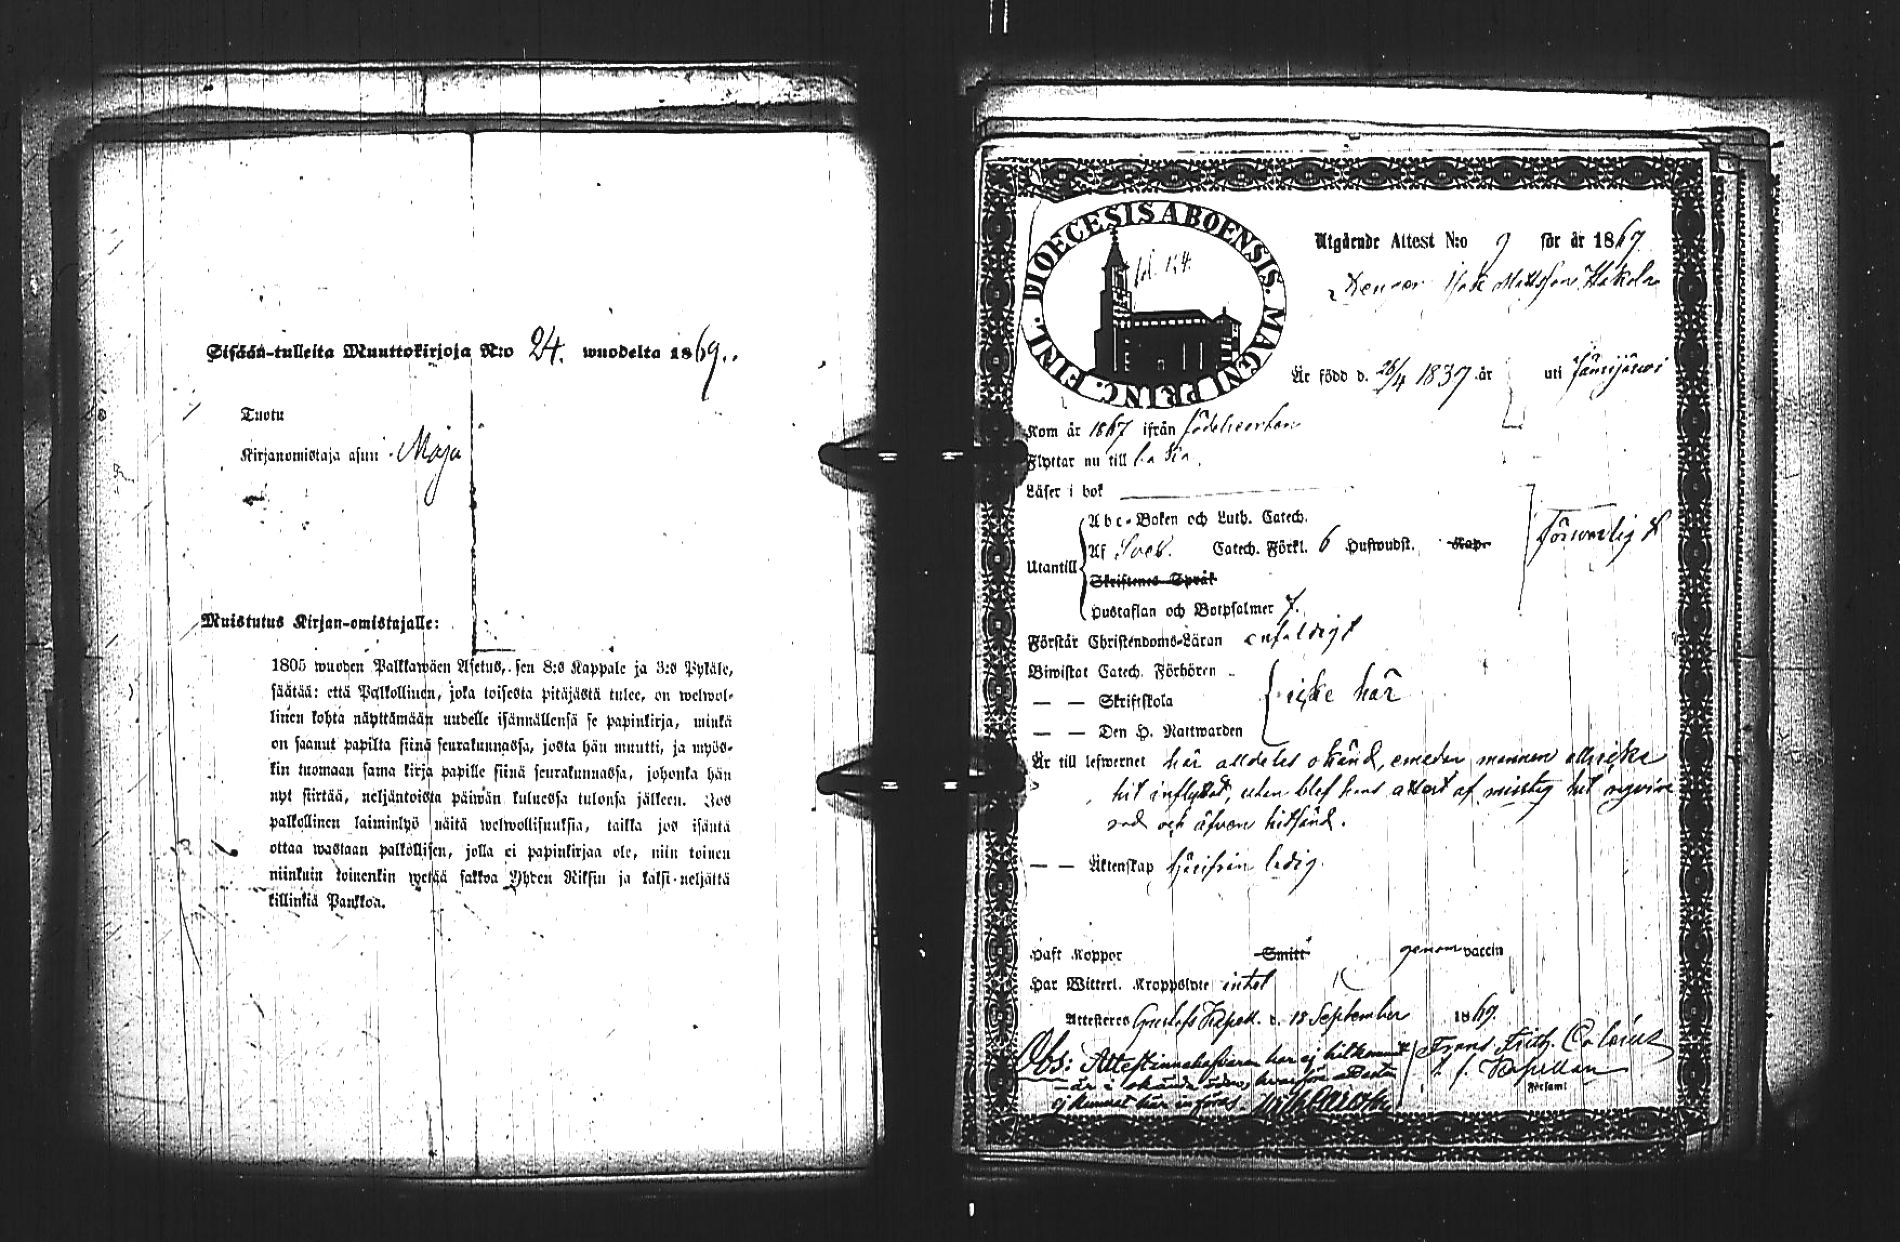 Sisään-tulleita Muuttokirjoja N:o 24. wuodelta 1869.
Tuotu
Kirjanomistaja asuu Maja
Muistutus Kirjan-omistajalle:
1805 wuoden Palkkawäen Asetus, sen 8:s Kappale ja 3:s Pykäle,
säätää: että Palkollinen, joka toisesta pitäjästä tulee, on welwol-
linen kohta näyttämään uudelle isännällensä se papinkirja, minkä
on saanut papilta siinä seurakunnassa, josta hän muutti, ja myös-
kin tuomaan sama kirja papille siinä seurakunnassa, johonka hän
nyt siirtää, neljäntoista päiwän kuluessa tulonsa jälkeen. Jos
palkollinen laiminlyö näitä welwollisuuksia, taikka jos isäntä
ottaa wastaan palkollisen, jolla ei papinkirjaa ole, niin toinen
niinkuin toinenkin wetää sakkoa Yhden Riksin ja kaksi-neljättä
killinkiä Pankkoa.
DIOECESIS ABOENSIS. MAGNI PRINC. FINL.
fol. 154.
Utgående Attest N:o 9 för år 1867
Isak Mattsson Hakola
Är född d. 26/4 1837 år uti Jämijärwi
Kom år 1867 ifrån födelseorten
Flyttar nu till
Läser i bok
Abc-Boken och Luth. Catech.
Utantill Af Sveb. Catech. Förkl. 6 Hufwudst. Kap. Försvarligt
Skriftenes Språk
Hustaflan och Botpsalmer 7.
Förstår Christendoms-Läran enfaldigt
Biwistat Catech. Förhören
— — Skriftskola icke här
— — Den H. Nattwarden
Är till lefwernet här alldeles okänd, emedan mannen alls icke
hit inflyttat, utan blef hans attest af misstag hit
och äfven hitsänd.
— — Äktenskap härifrån ledig.
Haft Koppor Smitt genom vaccin
Har Witterl. Kroppslyte intet
Attesteras Gustafs Kapell. d. 18 September 1869.
Obs: Attestinnehafvaren har ej hitkommit
är i okända öden, hvarföre attesten
ej kunnat här införas.
Frans Frith. Calonius
Kapellan
Församl.